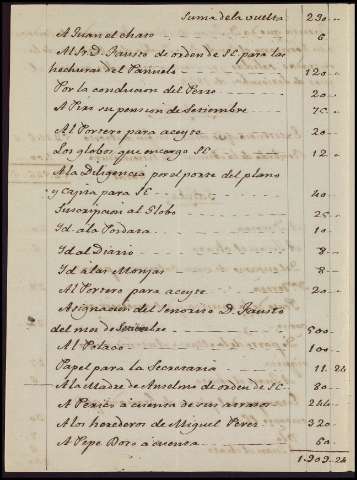 Suma de la vuelta 230 ..
A Juan el chato 6
Al Sr. D. Fausto de orden de SE para las
hechuras del Panuelo 120 ..
Por la conducion del Perro 20 ..
A Pixi su pension de Setiembre 75 ..
Al Portero para aceyte 20 ..
Los globos que encargo SE 12 ..
A la Diligencia por el porte del plano
y Capia para SE 40 ..
Suscripcion al Globo 25 ..
Yd. a la Posdata 10 ..
Yd. al Diario 8 ..
Yd. á las Monjas 8 ..
Al Portero para aceyte 20 ..
Asignacion del Senorito D. Fausto
del mes de 500 ..
Al Polaco 100 ..
Papel para la Secretaria 11. 24
A la Madre de Anselmo de orden de SE 80 ..
A Perico á cuenta de sus atrasos 244
A los herederos de Miguel Perez 320
A Pepe Boro á cuenta 60 ..
1.909. 24